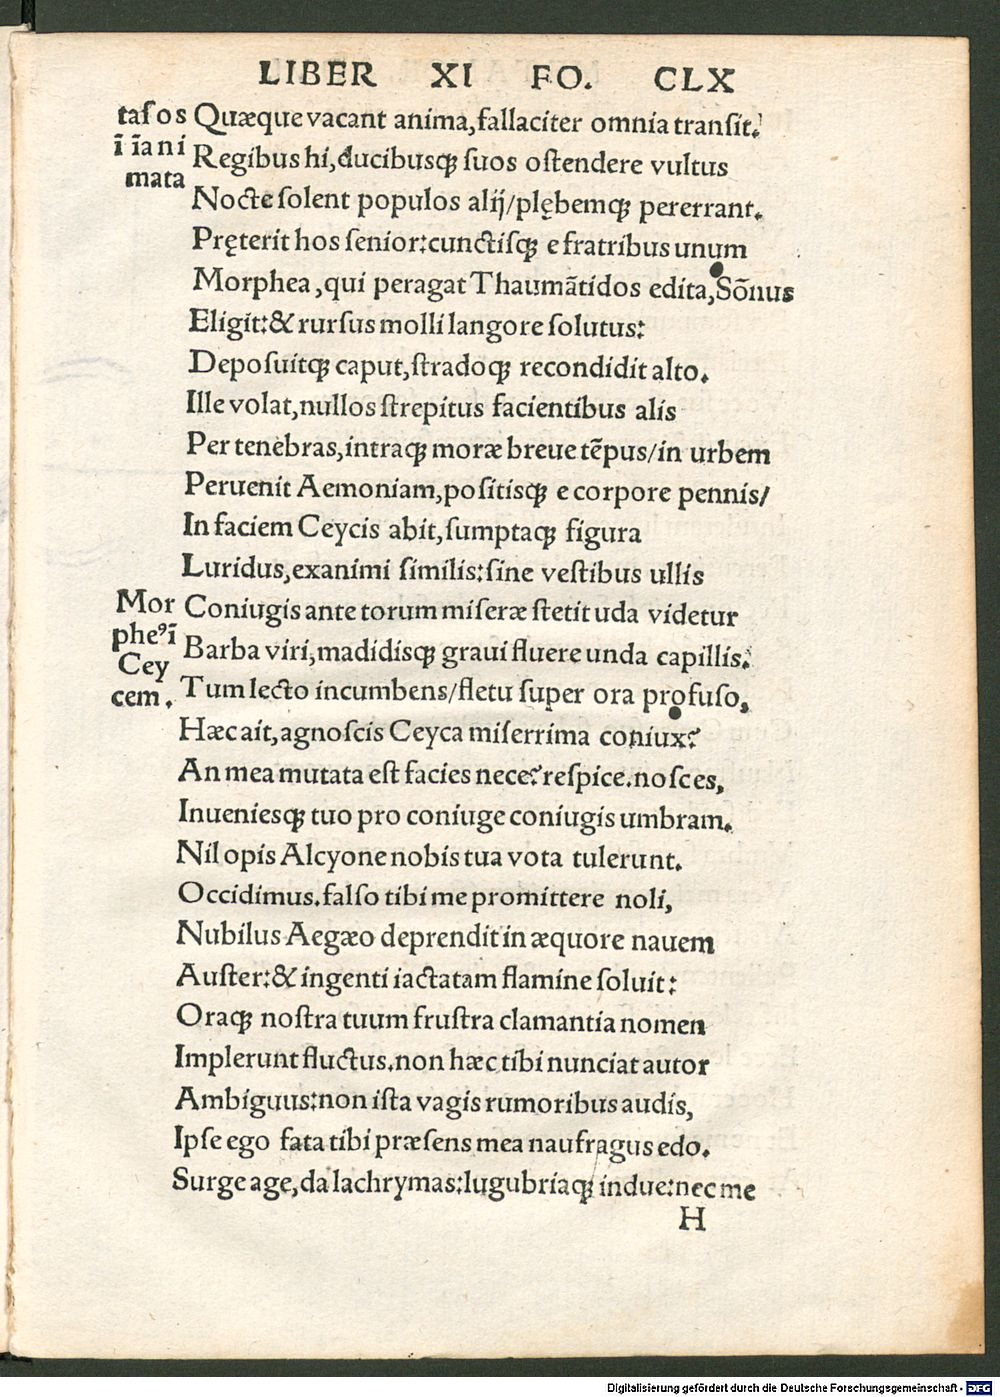 LIBER XI FO. CLX
taſos
ī īani
mata
Quæque vacant anima, fallaciter omnia tranſit.
Regibus hi, ducibusqꝫ ſuos oſtendere vultus
Nocte ſolent populos alij/plębemqꝫ pererrant.
Pręterit hos ſenior: cunctiſqꝫ e fratribus unum
Morphea, qui peragat Thaumātidos edita, Sōnus
Eligit: & rurſus molli langore ſolutus:
Depoſuitqꝫ caput, ſtradoqꝫ recondidit alto.
Ille volat, nullos ſtrepitus facientibus alis
Per tenebras, intraqꝫ moræ breue tēpus/in urbem
Peruenit Aemoniam, poſitisqꝫ e corpore pennis/
In faciem Ceycis abit, ſumptaqꝫ figura
Luridus, exanimi ſimilis: ſine veſtibus ullis
Mor
phe⁹ ī
Cey
cem.
Coniugis ante torum miſeræ ſtetit uda videtur
Barba viri, madidisqꝫ graui fluere unda capillis.
Tum lecto incumbens/fletu ſuper ora profuſo,
Hæc ait, agnoſcis Ceyca miſerrima coniux?
An mea mutata eſt facies nece? reſpice. noſces,
Inueniesqꝫ tuo pro coniuge coniugis umbram.
Nil opis Alcyone nobis tua vota tulerunt.
Occidimus. falſo tibi me promittere noli,
Nubilus Aegæo deprendit in æquore nauem
Auſter: & ingenti iactatam flamine ſoluit:
Oraqꝫ noſtra tuum fruſtra clamantia nomen
Implerunt fluctus. non hæc tibi nunciat autor
Ambiguus: non iſta vagis rumoribus audis,
Ipſe ego fata tibi præſens mea naufragus edo.
Surge age, da lachrymas: lugubriaqꝫ indue: nec me
H
Digitalisierung gefördert durch die Deutsche Forschungsgemeinschaft - DFG